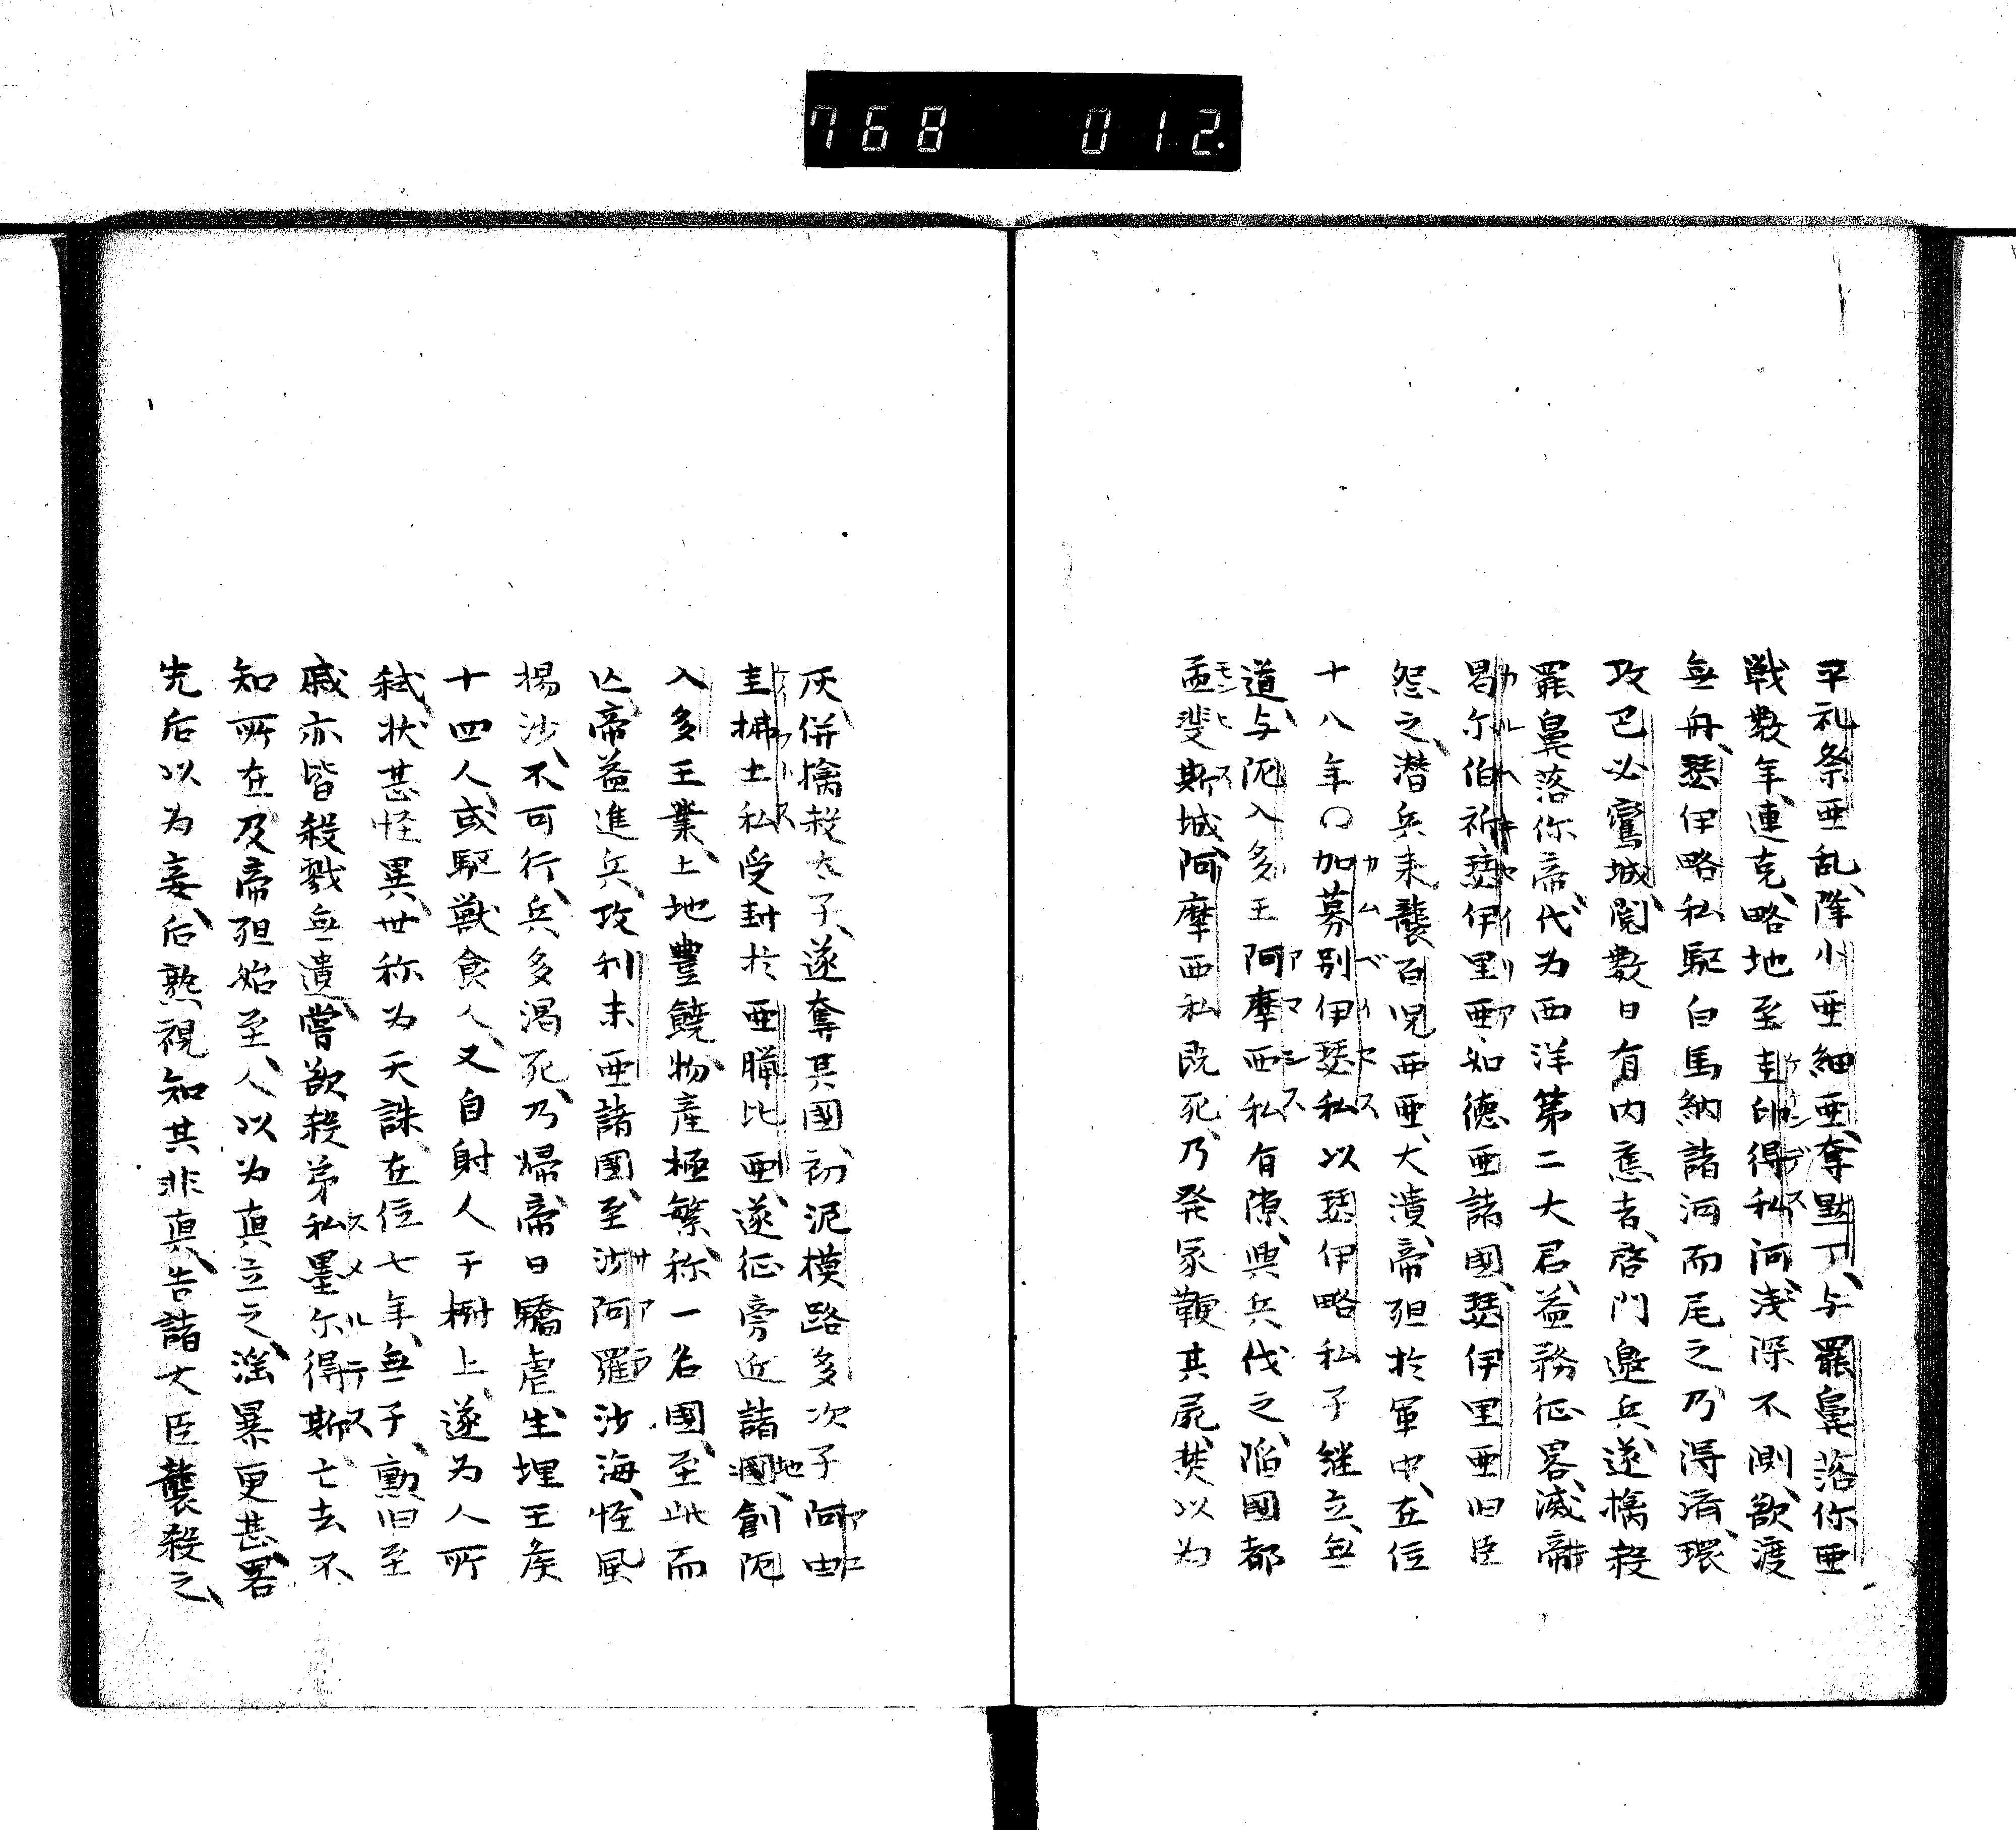 768 012.
平礼祭亜乱、降小亜細亜、奪默丁、与罷鼻落你亜
戦数年、連克、略地至圭印得私河、浅深不測、欲渡
無舟、瑟伊略私駆白馬納諸河而尾之、乃得済、環
攻巴必鸞城、閲数日有内應者、啓門邀兵、遂擒殺
罷鼻落你帝、代为西洋第二大君、益務征畧、滅
曷尓伯祈瑟伊里亜、如徳亜諸國、瑟伊里亜旧臣
怨之、潜兵来襲百児西亜、大潰、帝殂於軍中、在位
十八年〇加募別伊瑟私以瑟伊略私子継立、無
道、与阨入多王阿摩西私有隙、興兵伐之、陥國都
孟斐斯城、阿摩西私既死、乃発冢鞭其屍、焚以为
灰、併擒殺太子、遂奪其國、初泥模路多次子阿由
圭拂士私受封於亜臘比亜、遂征旁近諸地、創阨
入多王業、土地豊饒、物産極繁、称一名國、至此而
亾、帝益進兵、攻利未亜諸國、至沙阿羅沙海、怪風
揚沙、不可行、兵多渇死、乃帰、帝日驕虐、生埋王矦
十四人、或駆獣食人、又自射人于樹上、遂为人所
弑、状甚怪異、世称为天誅、在位七年、無子、勲旧至
戚亦皆殺戮無遺、嘗欲殺弟私墨尓得斯、亡去不
知所在、及帝殂始至、人以为真立之、滛暴更甚、畧
先后以为妾、后熟視知其非真、告諸大臣襲殺之、